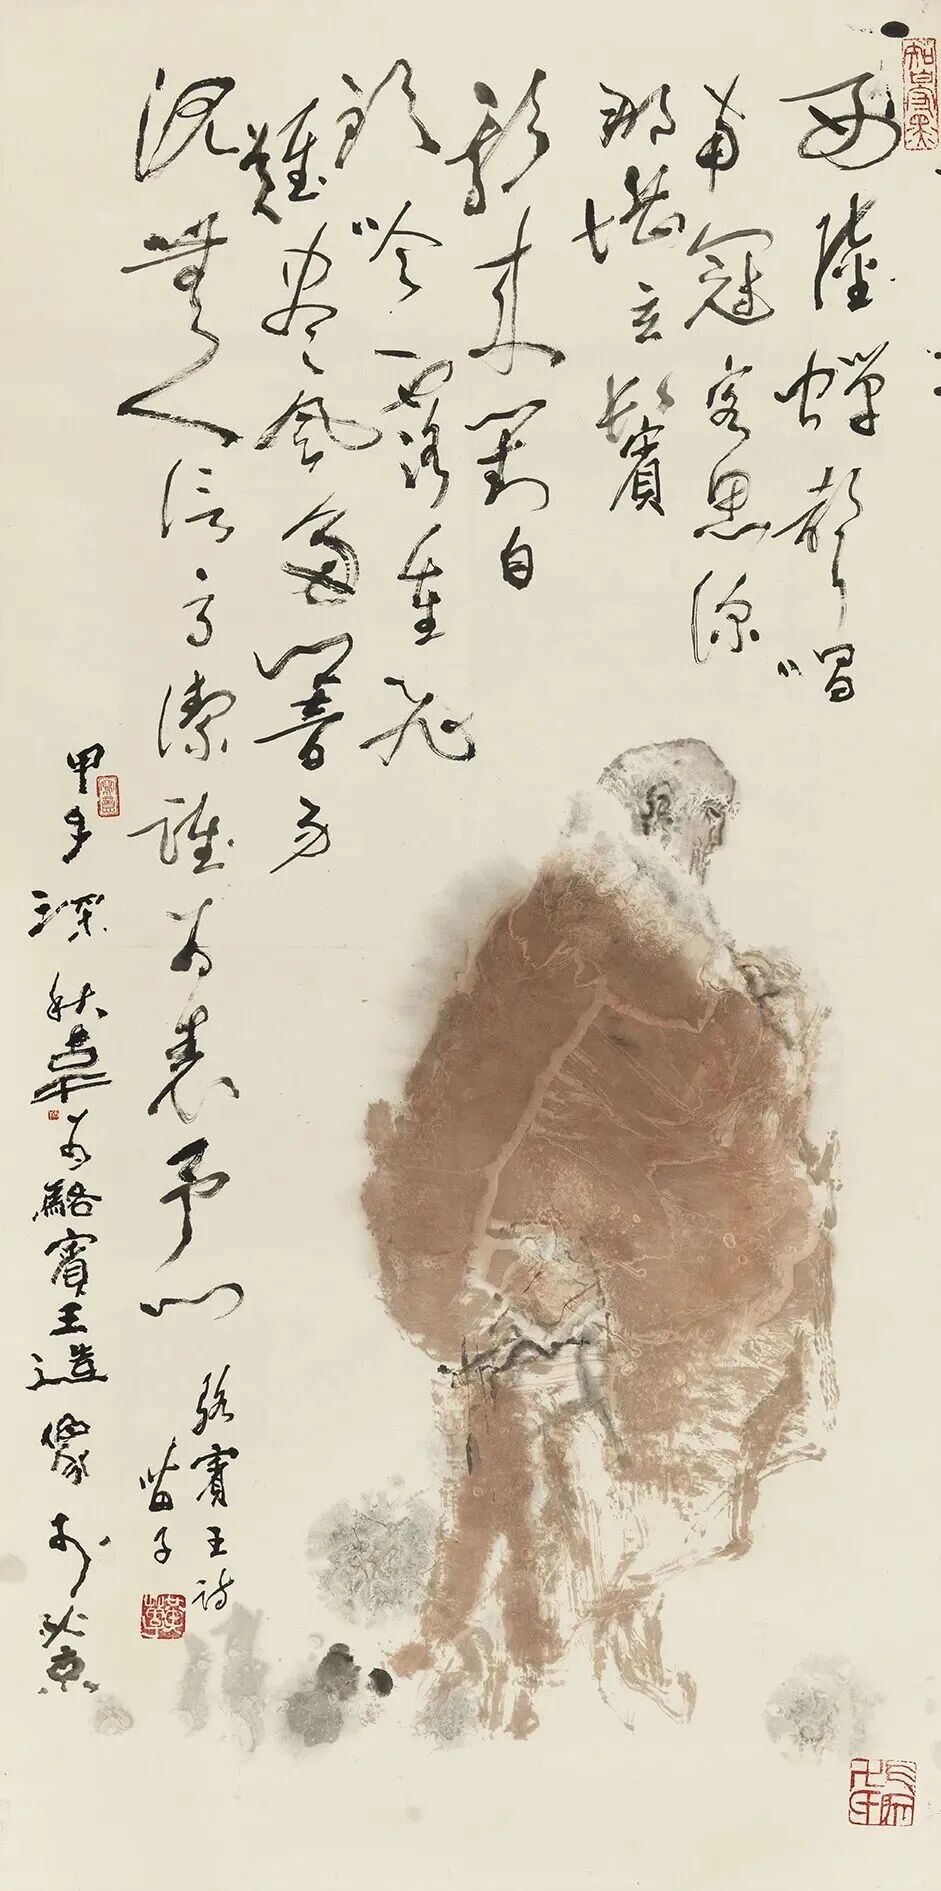 西陸蟬聲唱
南冠客思深
那堪玄鬢
影來對白
頭吟露重飛
難進風多響易
沉無人信高潔誰為表予心
駱賓王詩
苗子
甲子深秋為駱賓王造像於北京